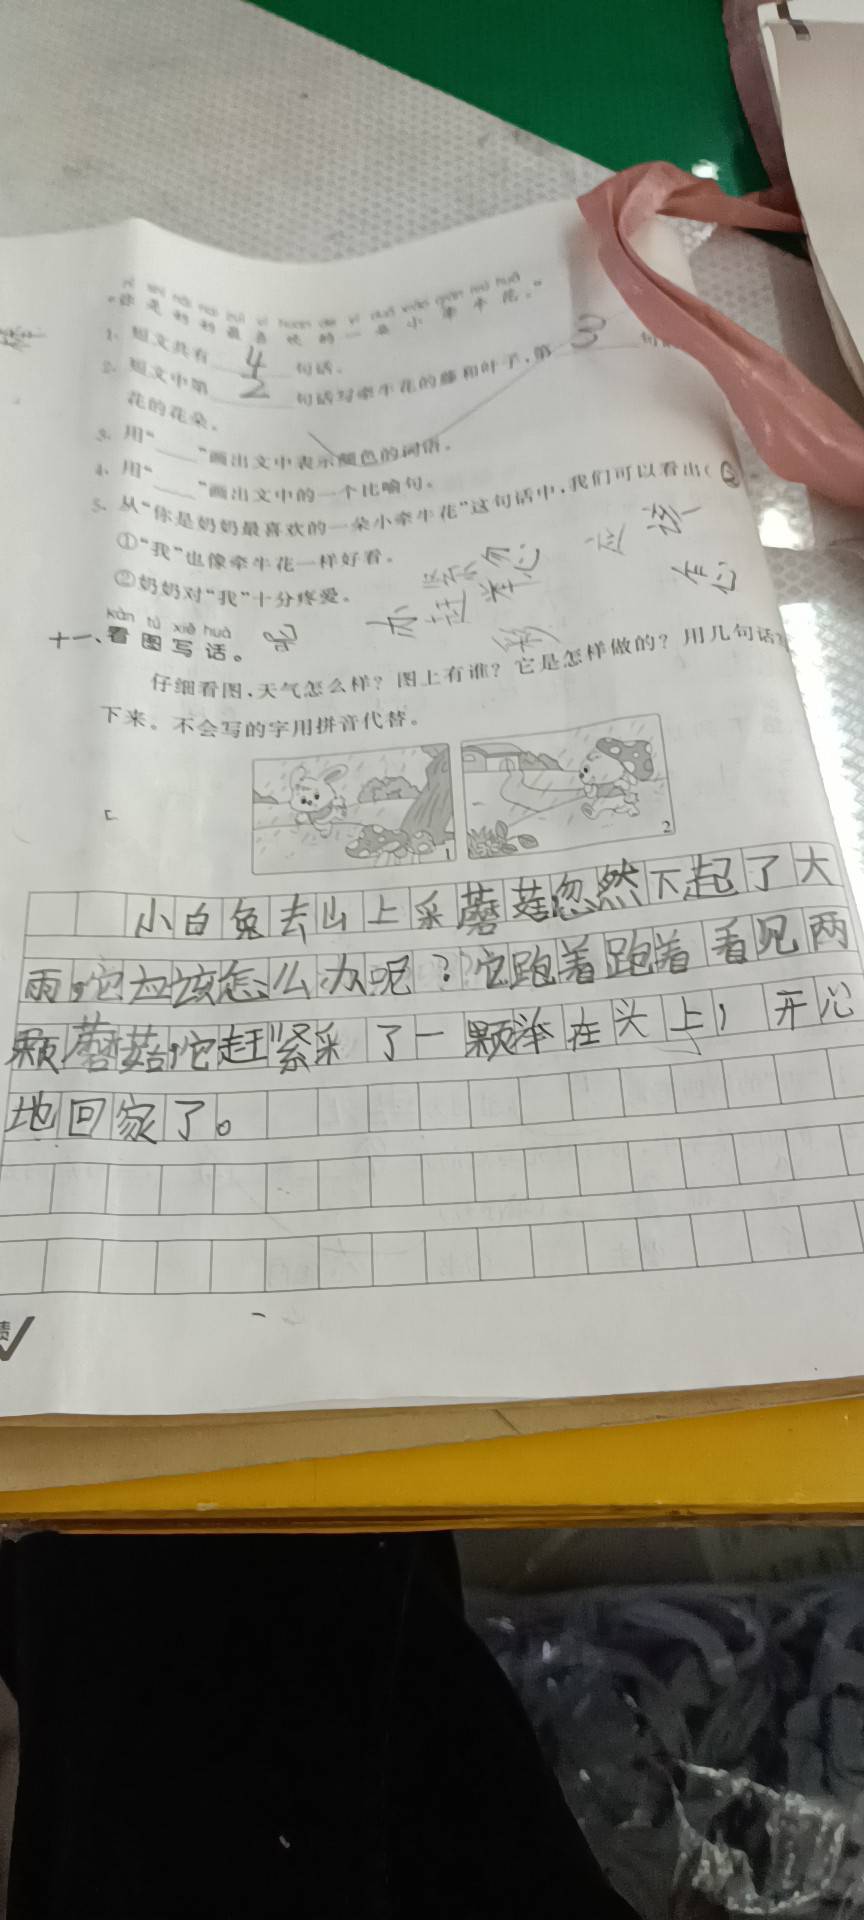 nǐ shì nǎi nai zuì xǐ huan de yì duǒ xiǎo qiān niú huā
“你是奶奶最喜欢的一朵小牵牛花。”
1. 短文共有 4 句话。
2. 短文中第 2 句话写牵牛花的藤和叶子,第 3 句
花的花朵。
3. 用“____”画出文中表示颜色的词语。
4. 用“____”画出文中的一个比喻句。
5. 从“你是奶奶最喜欢的一朵小牵牛花”这句话中,我们可以看出( ②
①“我”也像牵牛花一样好看。
②奶奶对“我”十分疼爱。
kàn tú xiě huà
十一、看图写话。
仔细看图,天气怎么样? 图上有谁? 它是怎样做的? 用几句话
下来。不会写的字用拼音代替。
1
2
小白兔去山上采蘑菇忽然下起了大
雨,它应该怎么办呢?它跑着跑着看见两
颗蘑菇,它赶紧采了一颗举在头上,开心
地回家了。